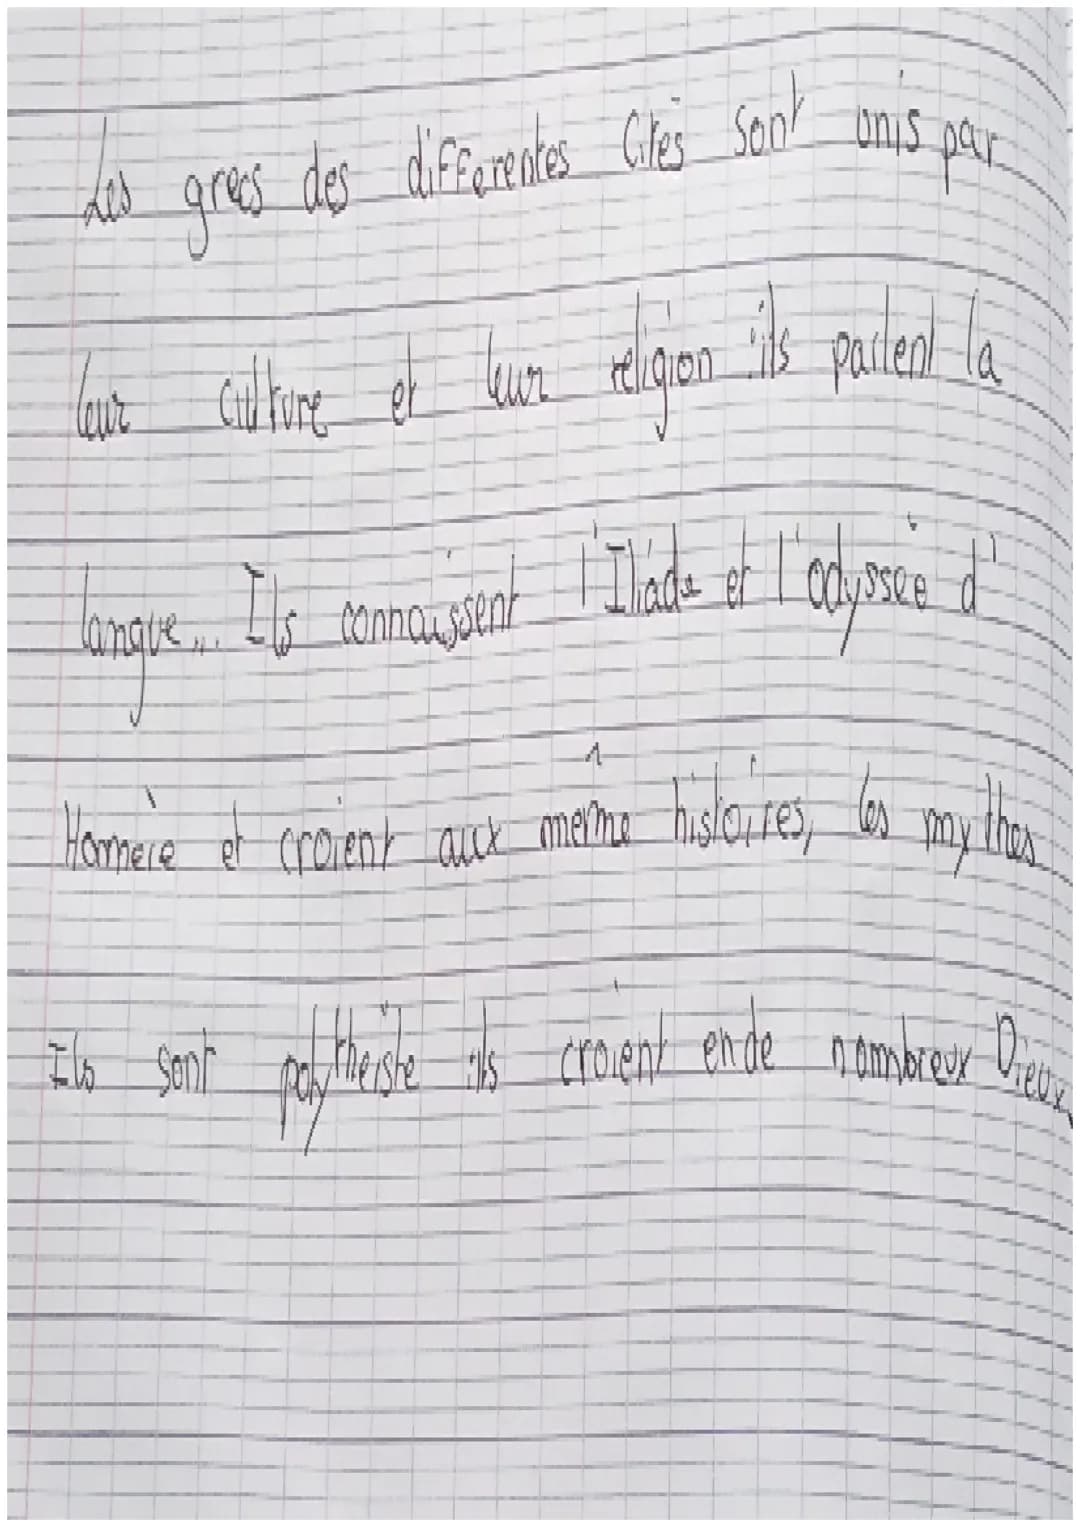 Les grecs des differentes Cités sont unis par
leur culture et leur religion : ils parlent la
langue... Ils connaissent l'Iliade et l'odyssée d'
Homère et croient aux même histoires, les mythes
Ils sont polytheiste ils croient en de nombreux Dieux